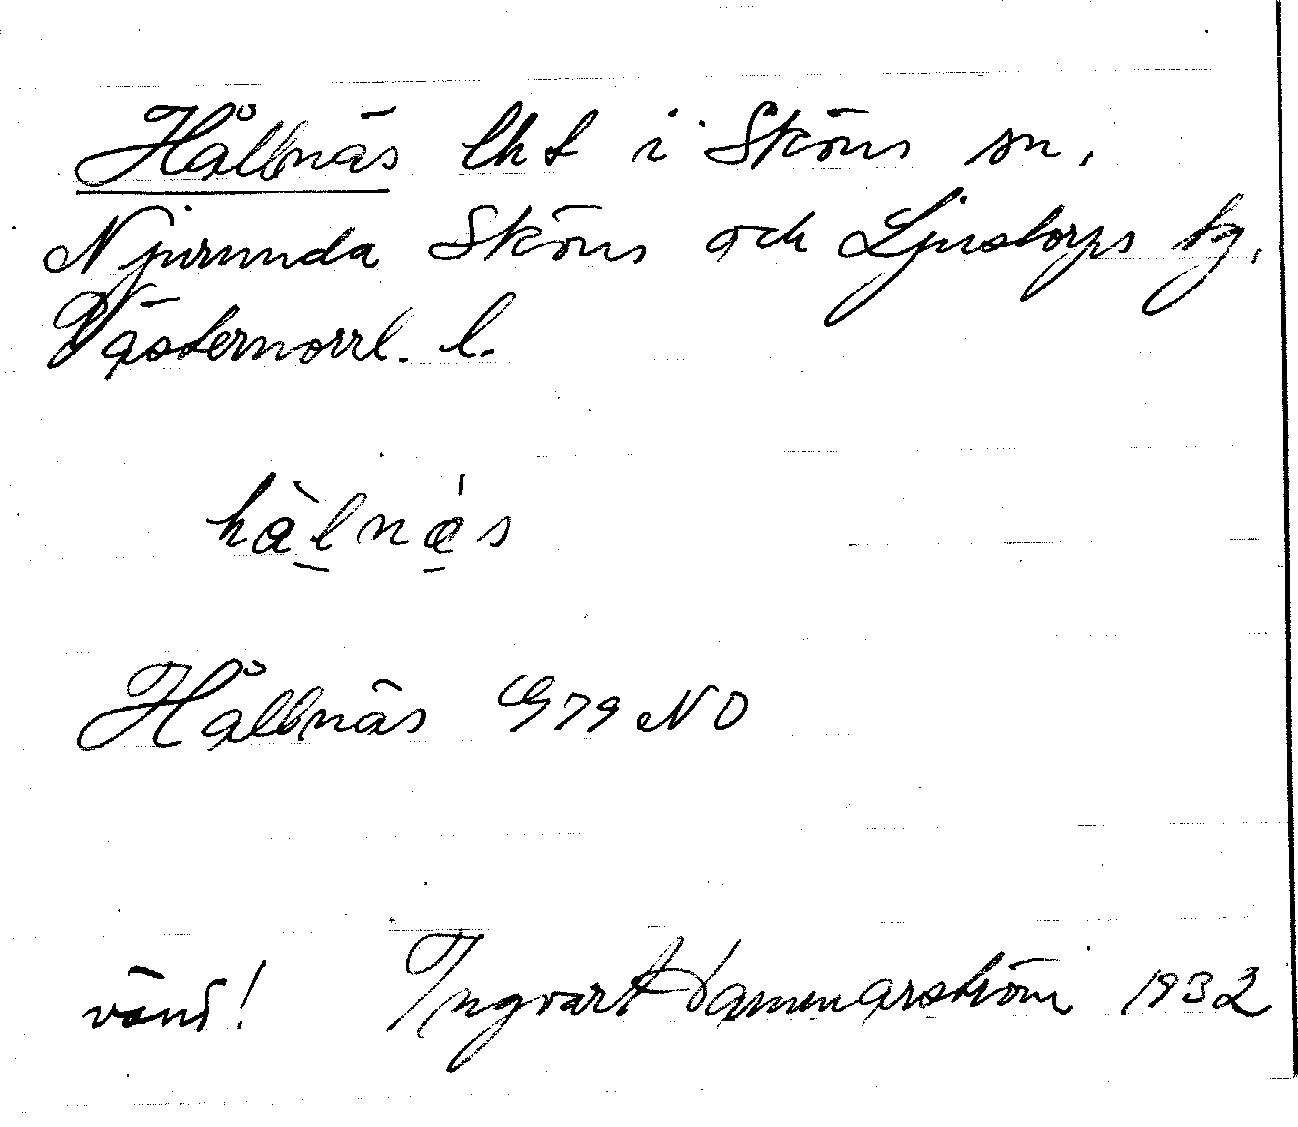 Hållnäs lht i Sköns sn,
Njurunda Sköns och Ljustorps tg,
Västernorrl. l.
hàlnás
Hållnäs G79 NO
vänd! Ingvart Hammarström 1932